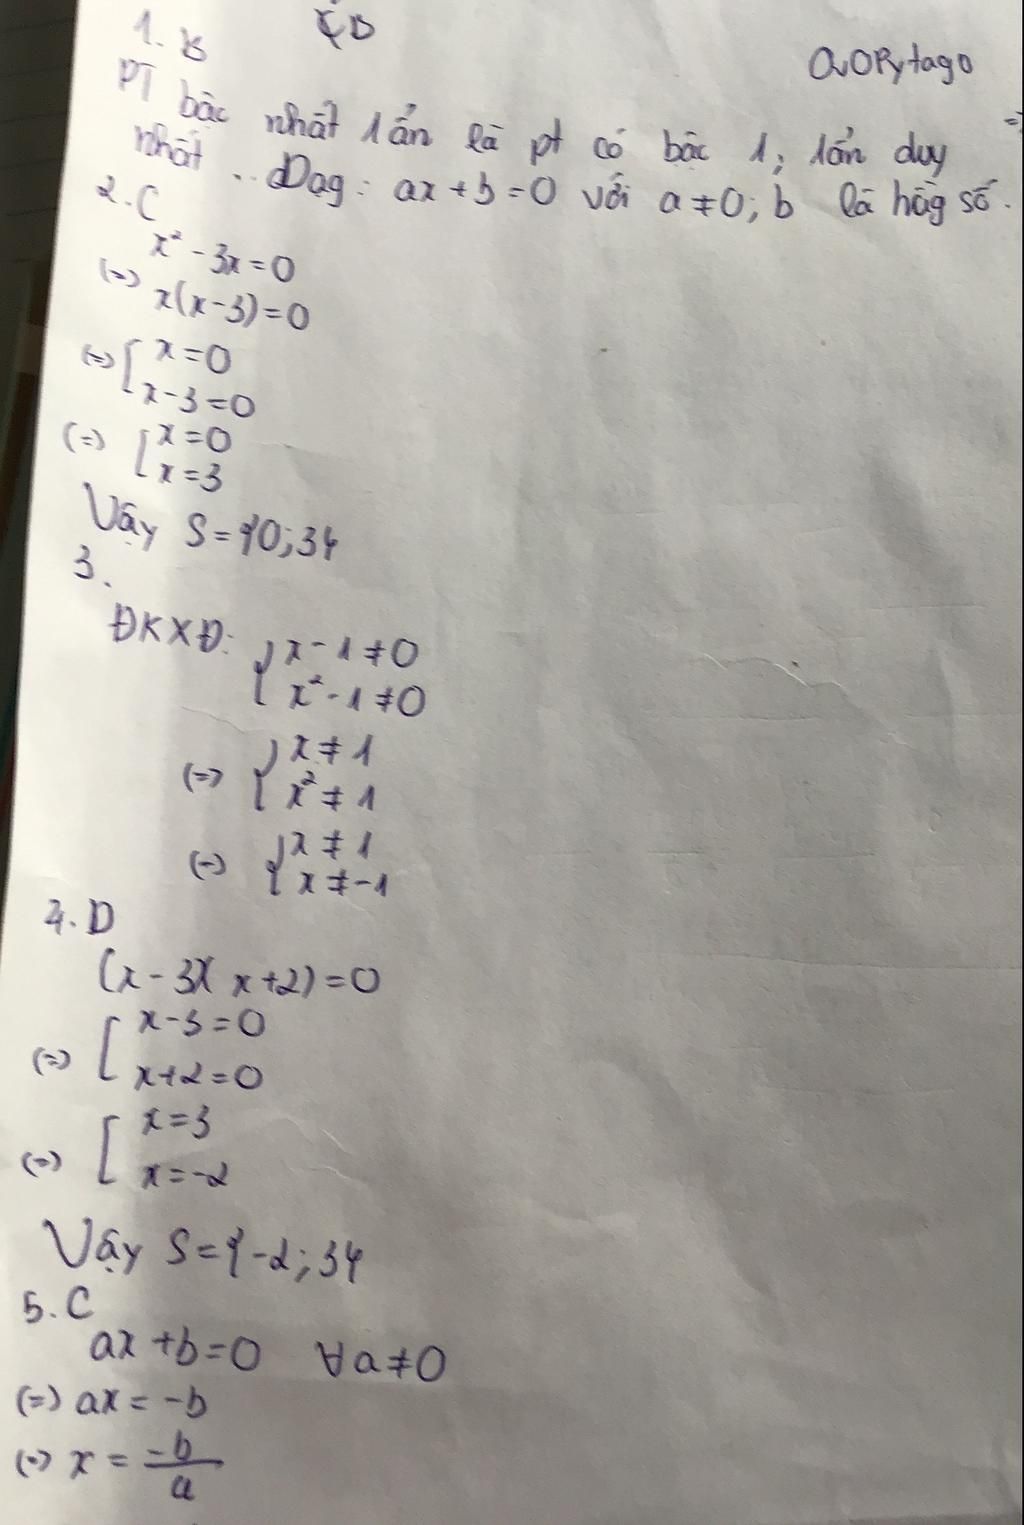 1. B
PT bậc nhất 1 ẩn là pt có bậc 1, 1 ẩn duy
nhất .. Dạg: ax + b = 0 với a ≠ 0; b là hằg số.
2. C
x² - 3x = 0
(=) x(x - 3) = 0
(=) [ x = 0
x - 3 = 0
(=) [ x = 0
x = 3
Vậy S = {0; 3}
3.
ĐKXĐ: { x - 1 ≠ 0
x² - 1 ≠ 0
(=) { x ≠ 1
x² ≠ 1
(=) { x ≠ 1
x ≠ -1
4. D
(x - 3)(x + 2) = 0
(=) [ x - 3 = 0
x + 2 = 0
(=) [ x = 3
x = -2
Vậy S = {-2; 3}
5. C
ax + b = 0 ∀ a ≠ 0
(=) ax = -b
(=) x = -b/a